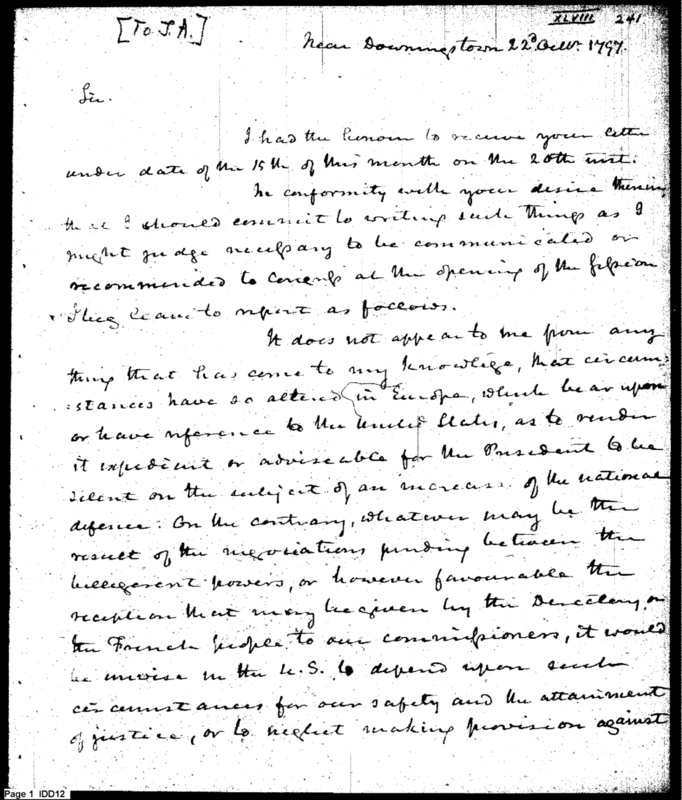 XLVIII 241
[To J.A.]
Near Downingstown 22d Octbr. 1797.
Sir.
I had the honour to receive your letter
under date of the 15th of this month on the 20th inst.
In conformity with your desire therein
that I should commit to writing such things as I
might judge necessary to be communicated or
recommended to Congress at the opening of the session
I beg leave to report as follows.
It does not appear to me from any
thing that has come to my knowlege, that circum-
:stances have so altered in Europe, which bear upon
or have reference to the United States, as to render
it expedient or adviseable for the President to be
silent on the subject of an increase of the national
defence: On the contrary, whatever may be the
result of the negociations pending between the
belligerent powers, or however favourable the
reception that may be given by the Directory or
the French people to our commissioners, it would
be unwise in the U.S. to depend upon such
circumstances for our safety and the attainment
of justice, or to neglect making provision against
Page 1 IDD12